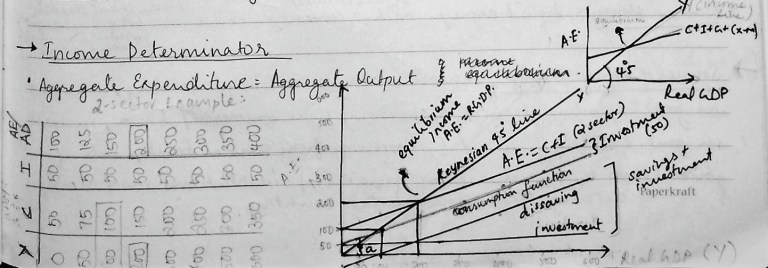 → Income Determinator
• Aggregate Expenditure = Aggregate Output } equilibrium
2-sector Example:
AE/AD 100 125 150 200 250 300 350 400
I 50 50 50 50 50 50 50 50
C 50 75 100 150 200 250 300 350
Y 0 50 100 200
A.E.
C+I+G+(x-m)
45
Real GDP
equilibrium income A.E. = RGDP.
Keynesian 45° line
Y
A.E. = C+I (2 sector)
} Investment (50)
consumption function
dissaving
investment
savings + investment
Paperkraft
A.E.
500
400
300
200
100
50
a
Real GDP (Y)